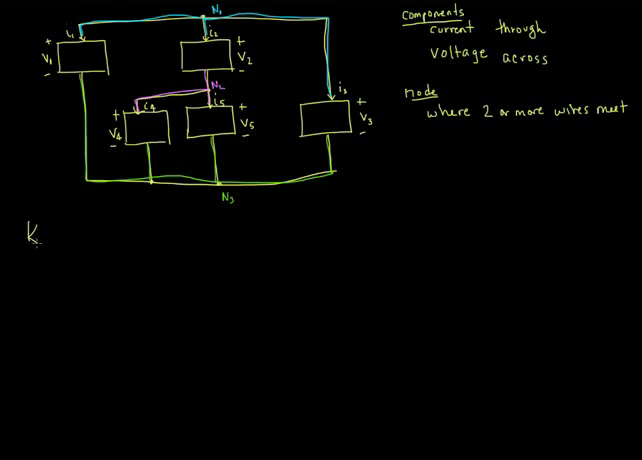 N₁
i₁
i₂
+
V₁
-
+
V₂
-
N₂
i₄
i₅
i₃
+
V₄
-
+
V₅
-
+
V₃
-
N₃
Components
current through
Voltage across
node
where 2 or more wires meet
K